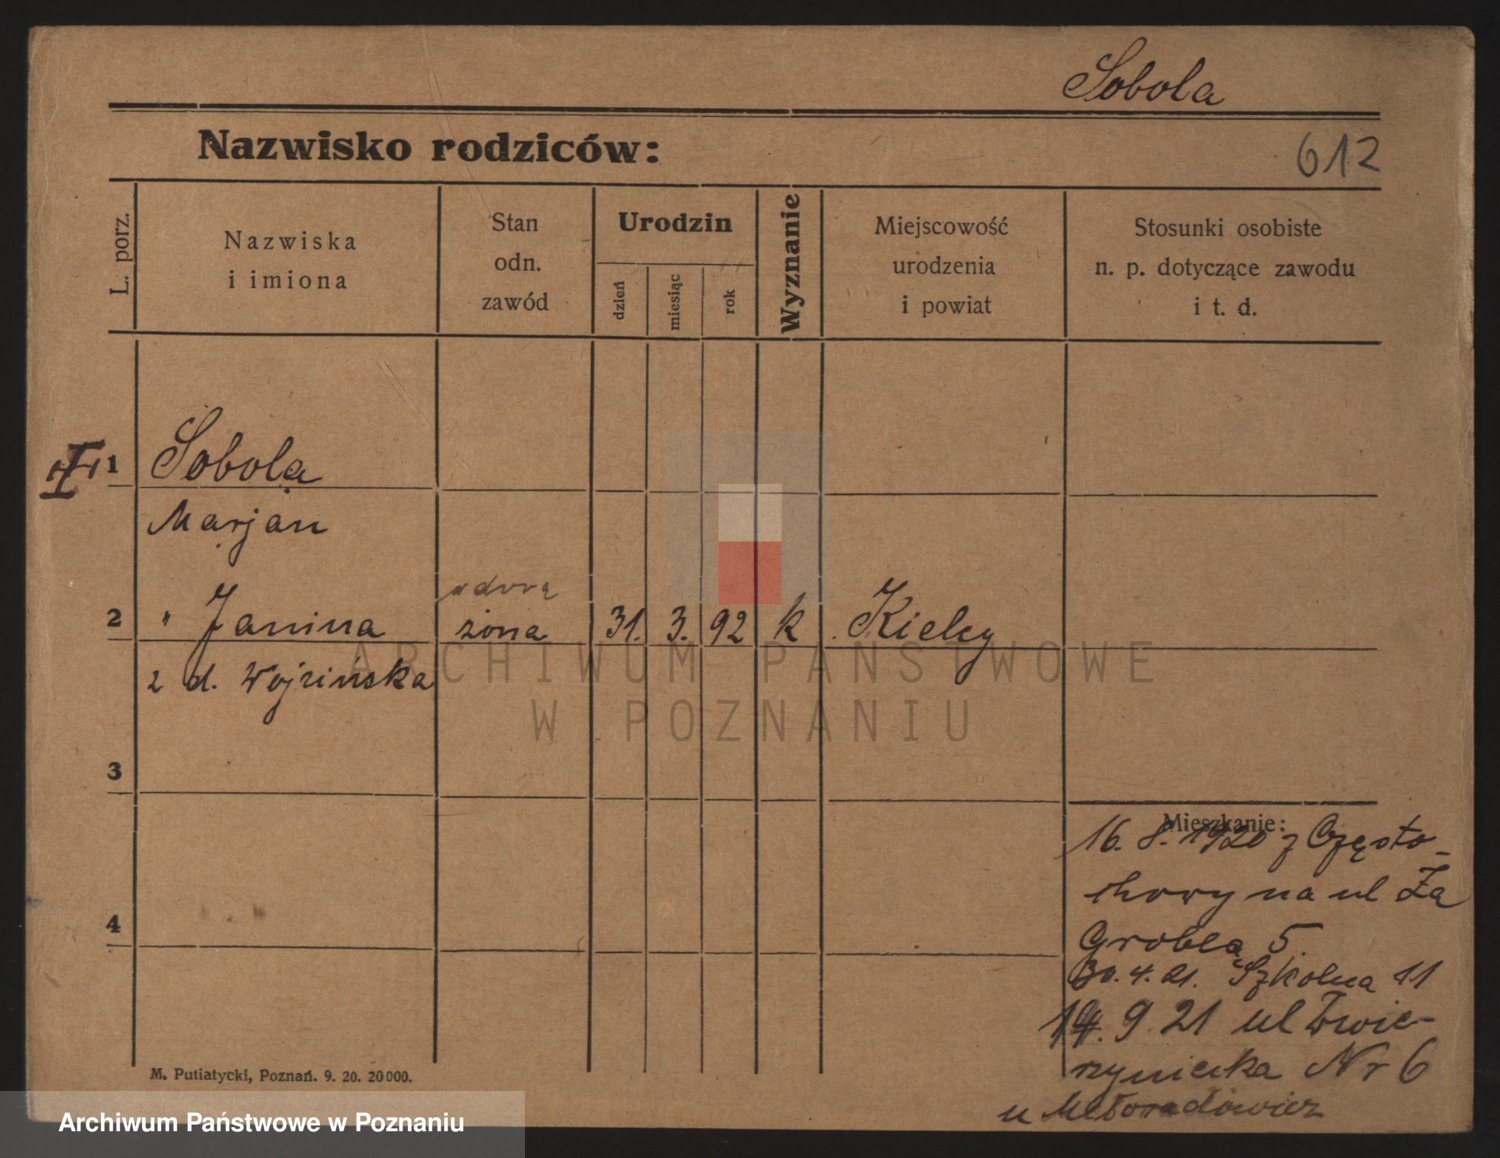 Sobola
Nazwisko rodziców:
612
L. porz.
Nazwiska
i imiona
Stan
odn.
zawód
Urodzin
dzień
miesiąc
rok
Wyznanie
Miejscowość
urodzenia
i powiat
Stosunki osobiste
n. p. dotyczące zawodu
i t. d.
I
1 Sobola
Marjan
2 " Janina żona 31. 3. 92 k Kielcy
z d. Wojzińska
3
4
Mieszkanie:
16. 8. 1920 z Często-
chowy na ul Za
Groblą 5.
30. 4. 21. Szkolna 11
14. 9. 21 ul Zwie-
rzyniecka Nr 6
u
M. Putiatycki, Poznań. 9. 20. 20 000.
ARCHIWUM PAŃSTWOWE
W POZNANIU
Archiwum Państwowe w Poznaniu